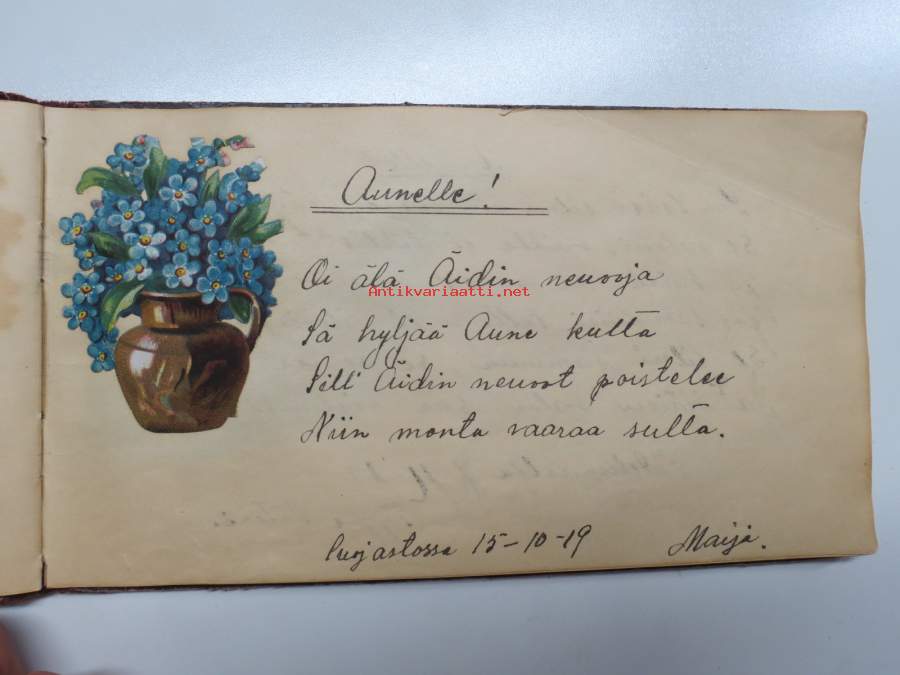 Aunelle!
Oi älä Äidin neuvoja
Antikvariaatti.net
Sä hyljää Aune kulta
Sill' Äidin neuvot poistelee
Niin monta vaaraa sulta.
15-10-19 Maija.